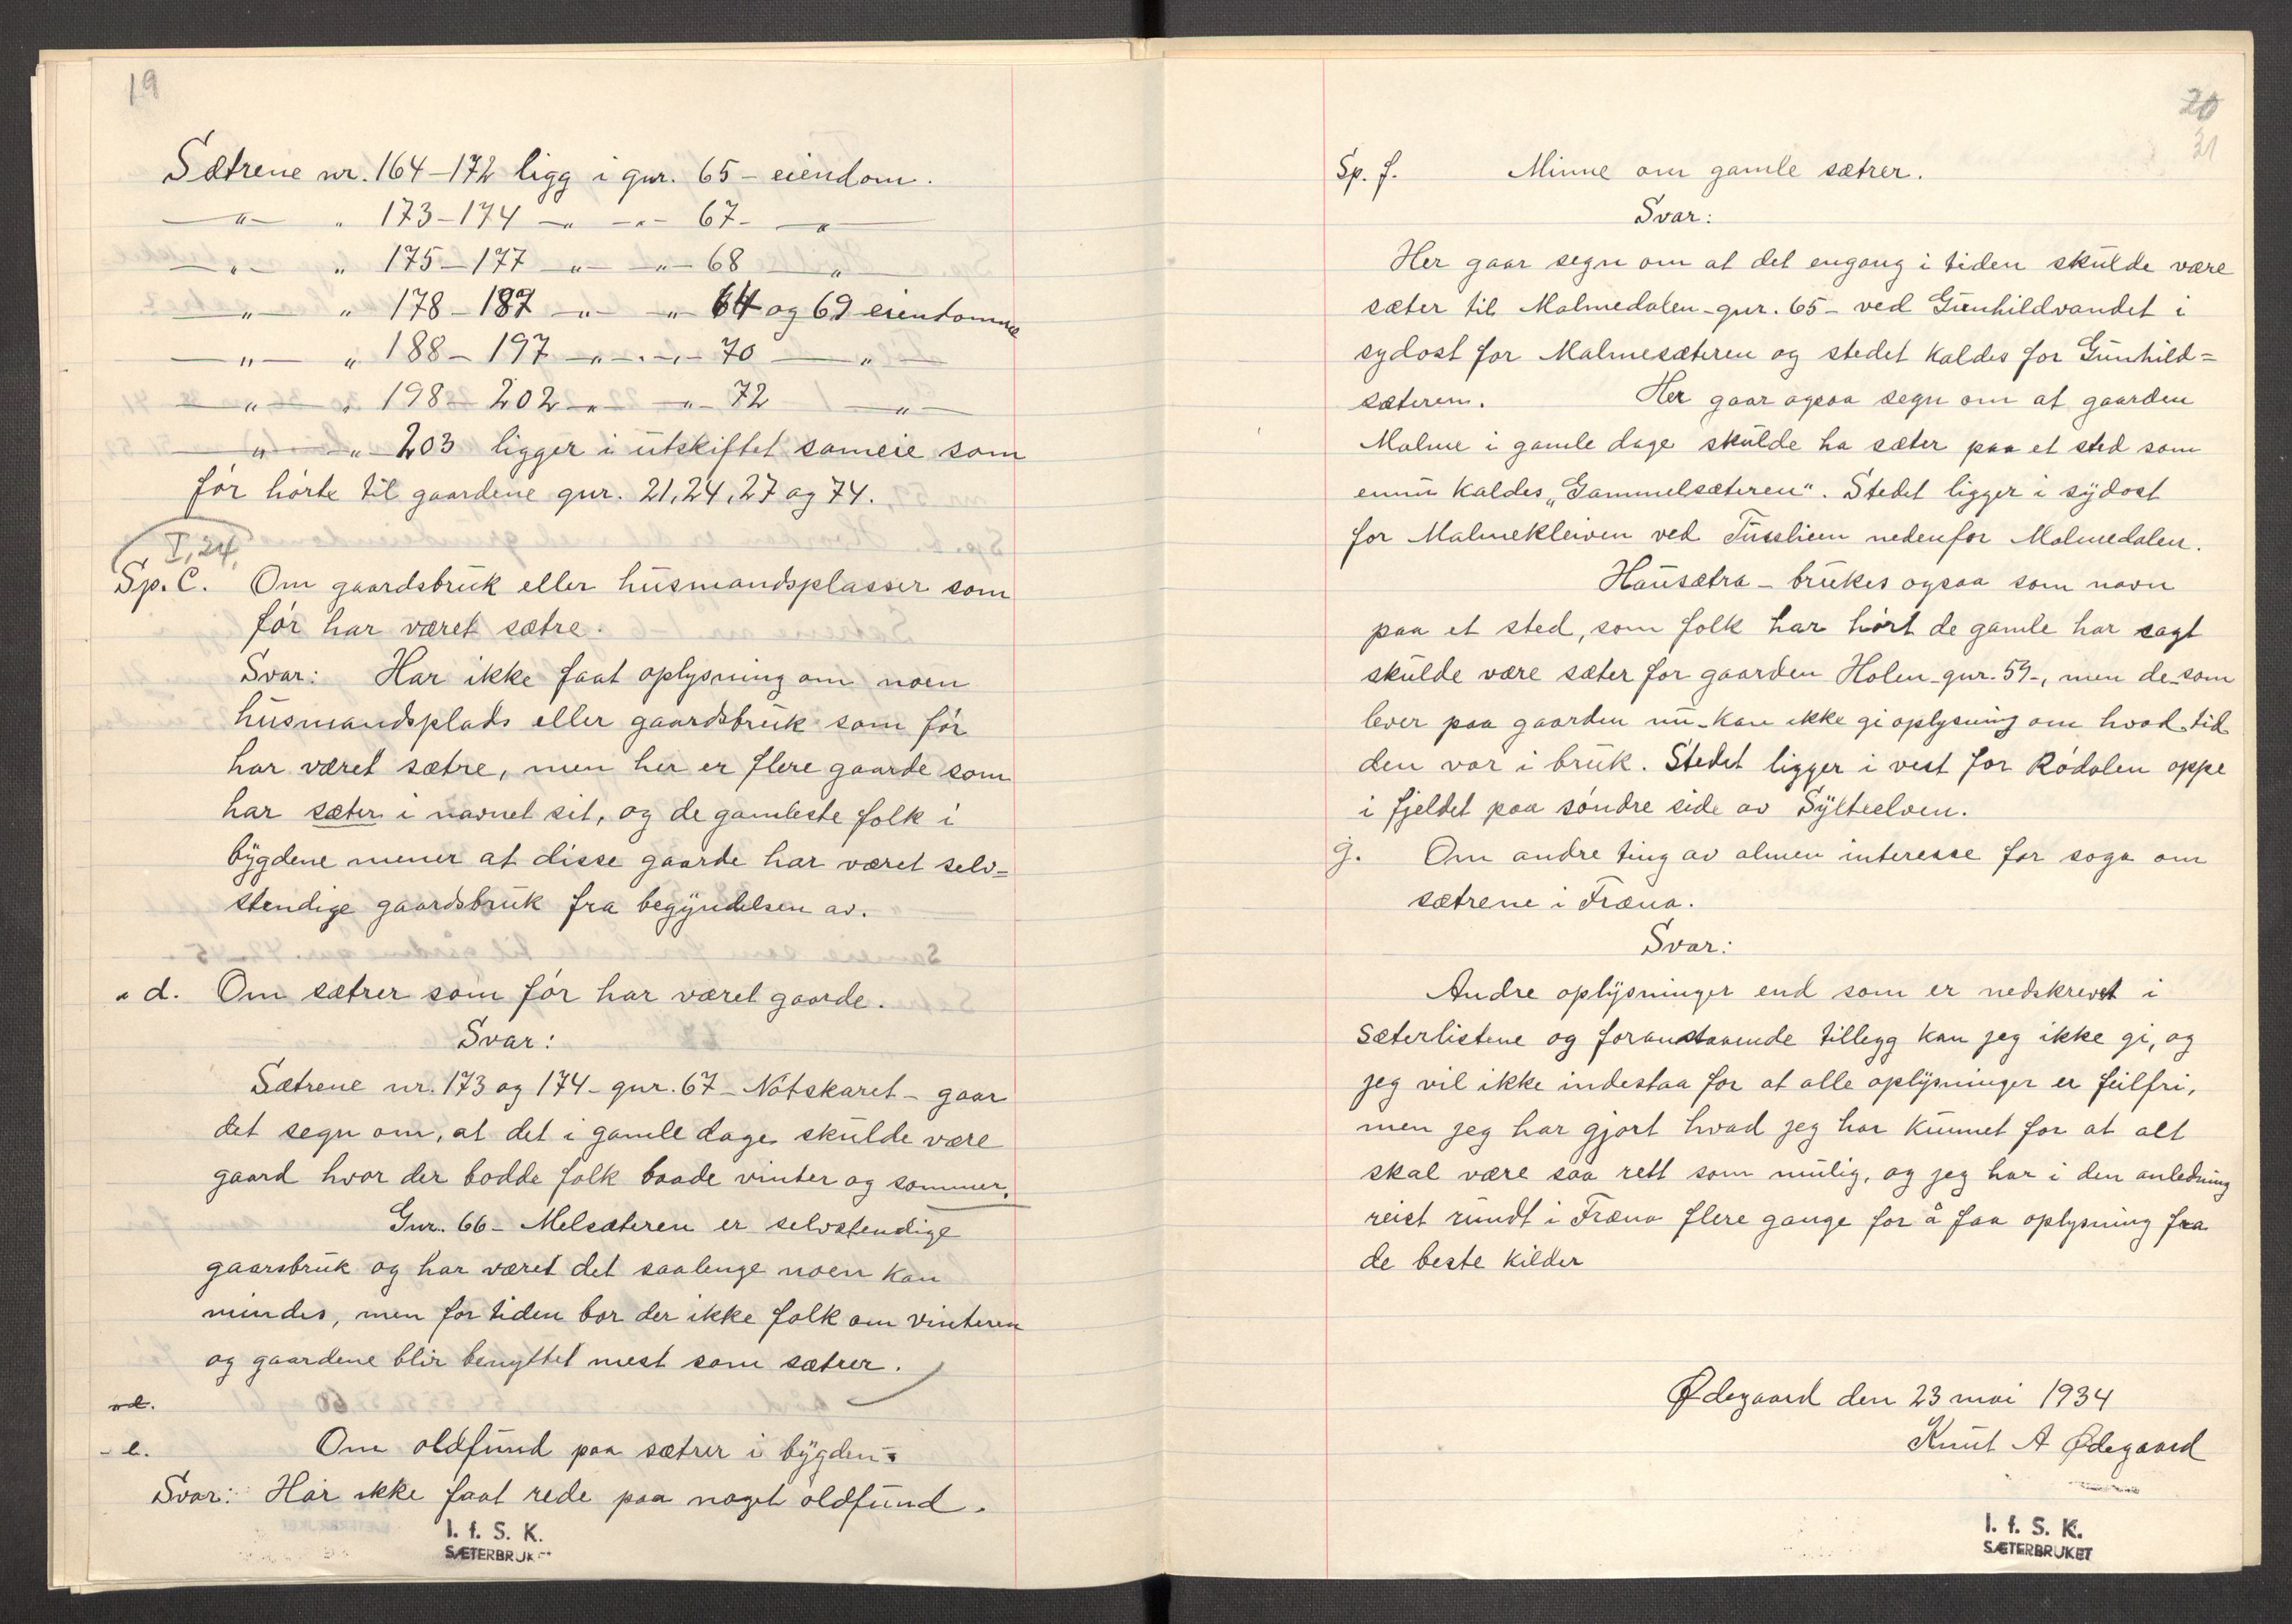 19
Sætrene nr. 164-172 ligg i gnr. 65 - eiendom.
—"— " 173-174 —"— —"— 67- —"—
—"— " 175-177 —"— —"— 68 —"—
—"— " 178-187 —"— —"— 64 og 69 eiendomme
—"— " 188-197 —"— —"— 70 —"—
—"— " 198-202 —"— —"— 72 —"—
—"— " 203 ligger i utskiftet sameie som
før hørte til gaardene gnr. 21, 24, 27 og 74.
I, 24,
Sp. C. Om gaardsbruk eller husmandsplasser som
før har været sætre.
Svar: Har ikke faat oplysning om noen
husmandsplads eller gaardsbruk som før
har været sætre, men her er flere gaarde som
har sæter i navnet sit, og de gamleste folk i
bygdene mener at disse gaarde har været selv=
stendige gaardsbruk fra begyndelsen av.
" d. Om sætrer som før har været gaarde.
Svar:
Sætrene nr. 173 og 174 - gnr. 67 - Nøtskaret - gaar
det segn om, at det i gamle dage skulde være
gaard hvor der bodde folk baade vinter og sommer.
Gnr. 66 - Melsæteren er selvstendige
gaarsbruk og har været det saalenge noen kan
mindes, men for tiden bor der ikke folk om vinteren
og gaardene blir benyttet mest som sætrer.
- e. Om oldfund paa sætrer i bygden.
Svar: Har ikke faat rede paa noget oldfund.
I. f. S. K.
SÆTERBRUKET
20
21
Sp. f. Minne om gamle sætrer.
Svar:
Her gaar segn om at det engang i tiden skulde være
sæter til Malmedalen - gnr. 65 - ved Gunhildvandet i
sydost for Malmesæteren og stedet kaldes for Gunhild=
sæteren. Her gaar ogsaa segn om at gaarden
Malme i gamle dage skulde ha sæter paa et sted som
ennu kaldes „Gammelsæteren". Stedet ligger i sydost
for Malmekleiven ved Tusslien nedenfor Malmedalen.
Hausætra - brukes ogsaa som navn
paa et sted, som folk har hørt de gamle har sagt
skulde være sæter for gaarden Holen - gnr. 59 -, men de som
lever paa gaarden nu - kan ikke gi oplysning om hvad tid
den var i bruk. Stedet ligger i vest for Rødalen oppe
i fjeldet paa søndre side av Sylteelven.
g. Om andre ting av almen interesse for soga om
sætrene i Fræna.
Svar:
Andre oplysninger end som er nedskrevet i
Sæterlistene og foranstaaende tillegg kan jeg ikke gi, og
jeg vil ikke indestaa for at alle oplysninger er feilfri,
men jeg har gjort hvad jeg har kunnet for at alt
skal være saa rett som mulig, og jeg har i den anledning
reist rundt i Fræna flere gange for å faa oplysning fra
de beste kilder
Ødegaard den 23 mai 1934
Knut A Ødegaard
I. f. S. K.
SÆTERBRUKET